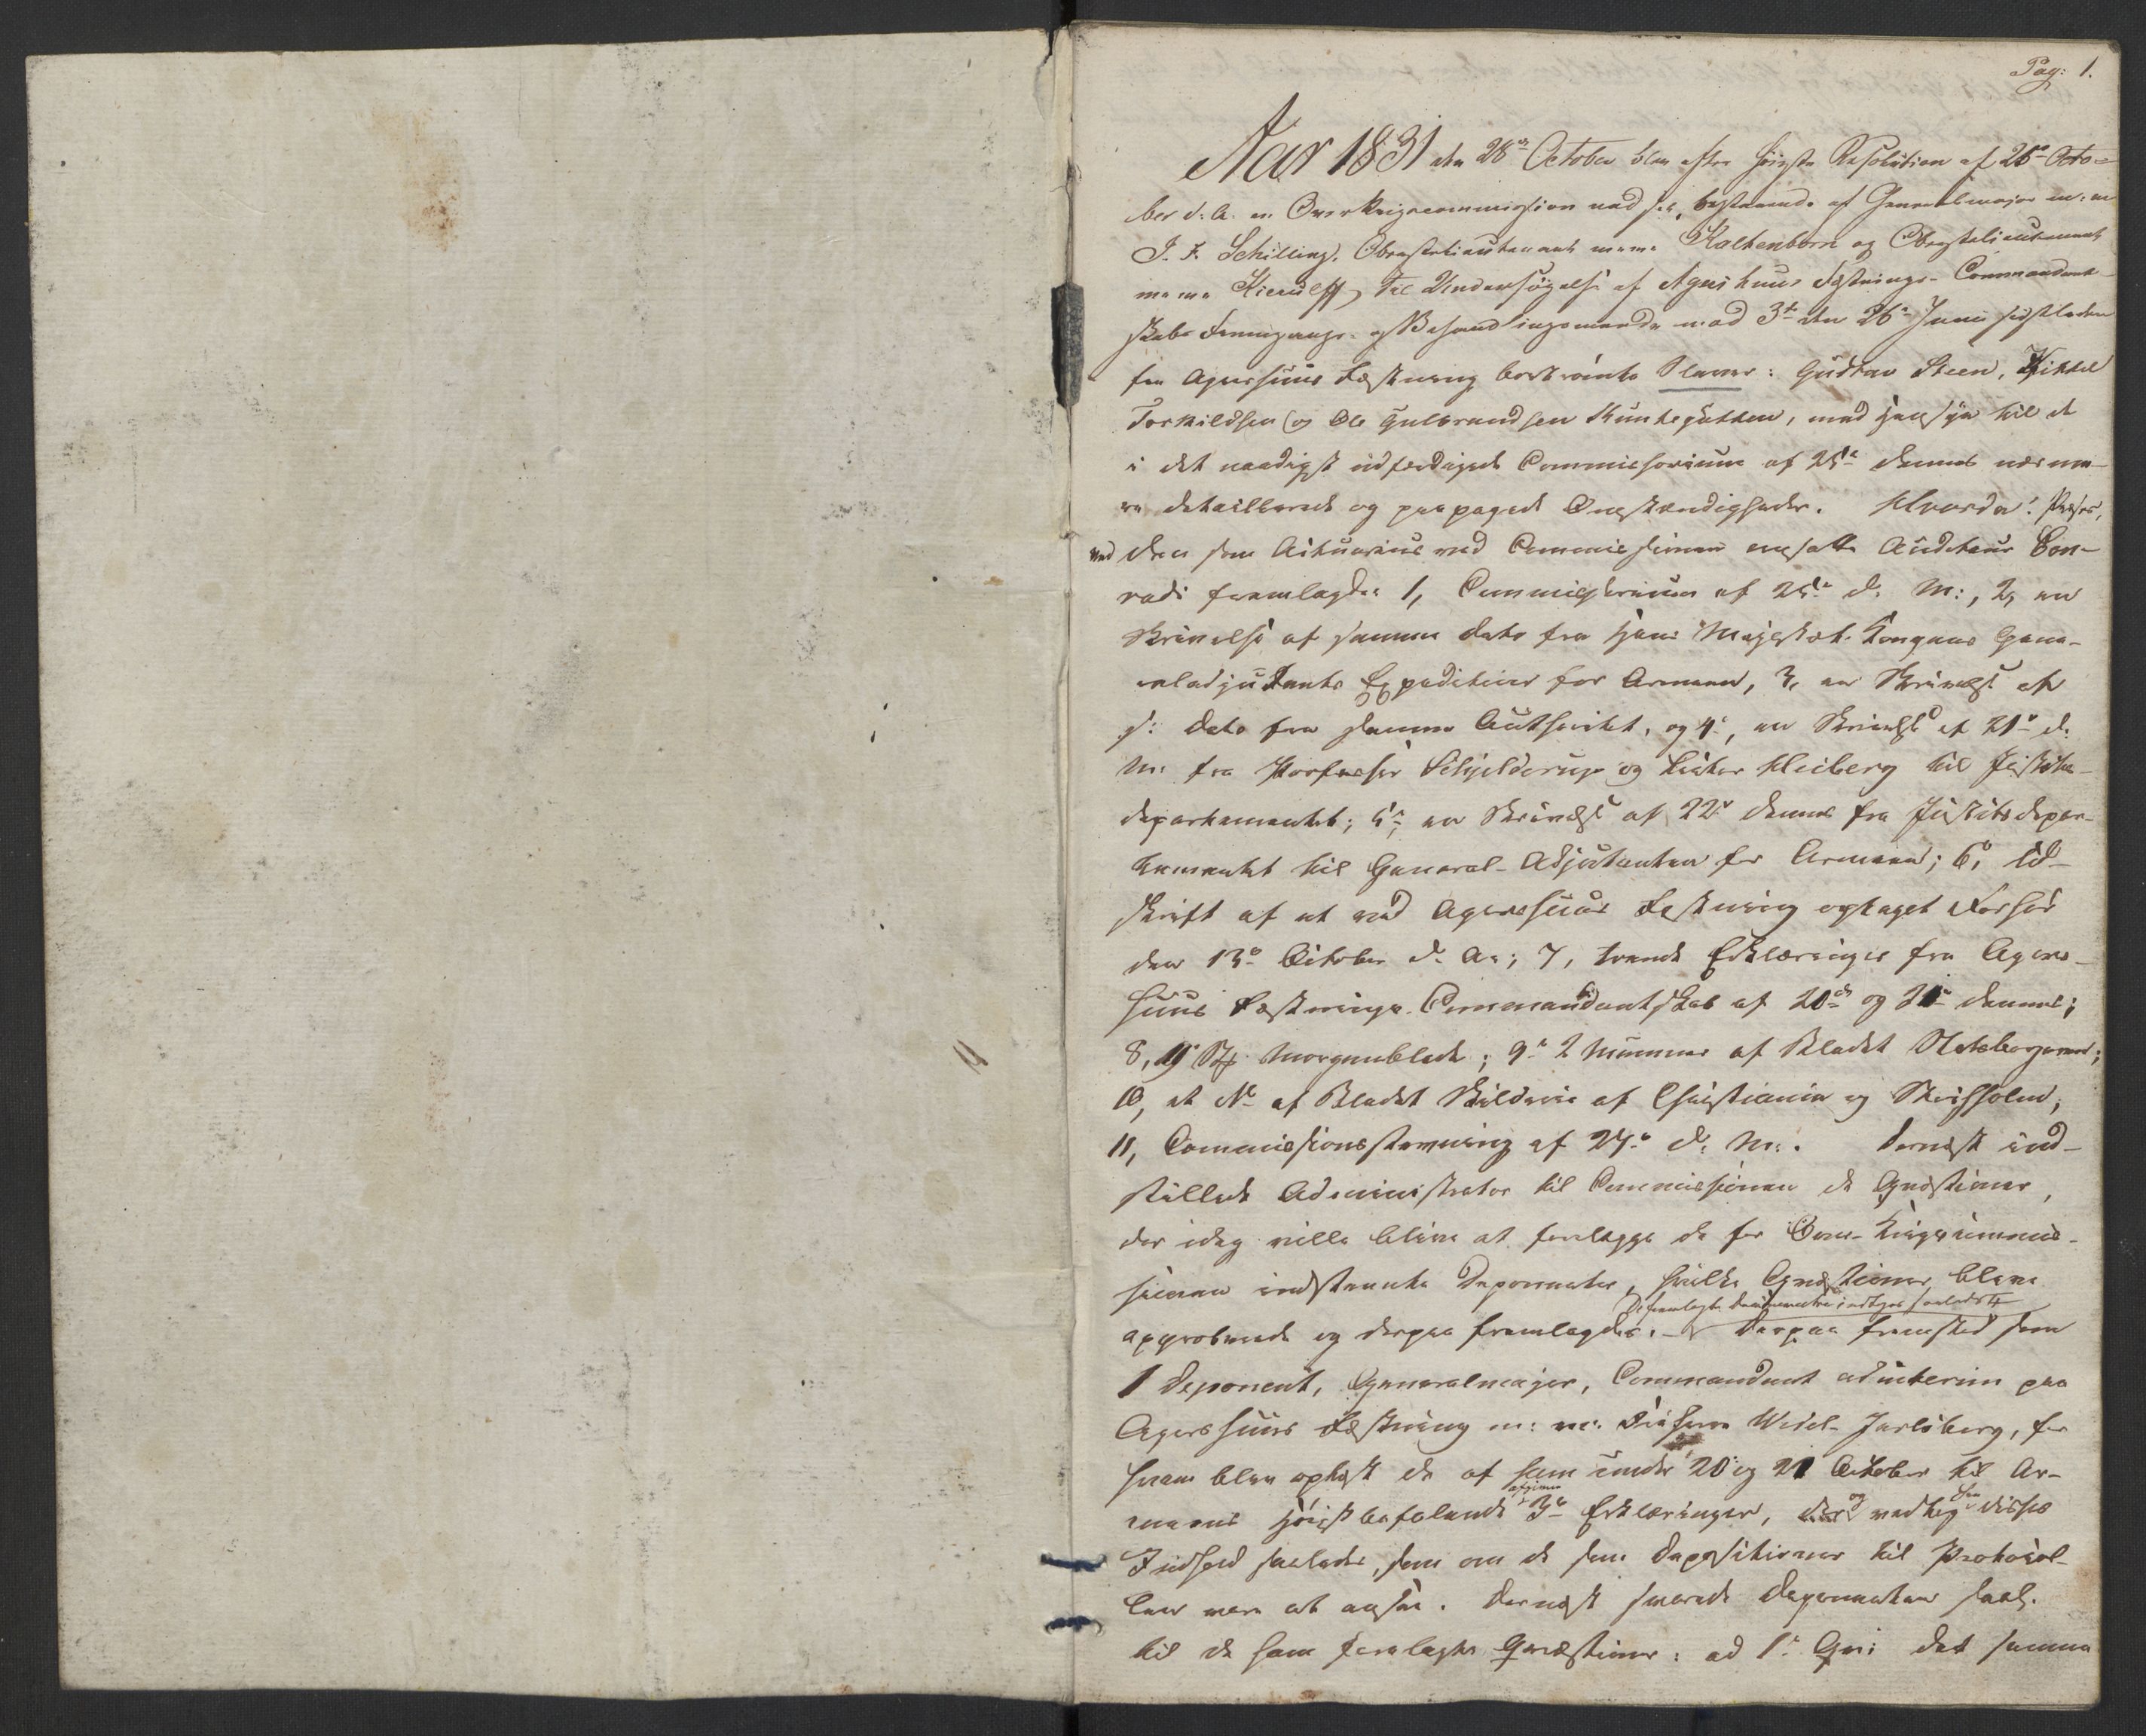 Pag: 1.
Aar 1831 den 28de October blev efter høieste Resolution af 25de Octo-
ber d: A. en Overkrigscommission sat, bestaaende af Generalmajor m: m
J. F. Schilling, Oberstelieutenant m: m: Kaltenborn og Oberstelieutenant
m: m: Kierulff, til Undersøgelse af Agershuus Fæstnings-Commandant-
skabs Fremgangs- og Behandlingsmaade mod 3de den 26de Juni sidstleden
fra Agershuus Fæstning bortrømte Slaver: Gustav Steen, Kittel
Torkildsen og Ole Gulbrandsen Kuntegutten, med Hensyn til de
i det naadigst udfærdigede Commissorium af 25de dennes nærme-
re detaillerede og paapegede Omstændigheder. Hvorda:
ved den som Actuarius ved Commissionen ansatte Auditeur Con-
radi fremlagdes 1, Commissorium af 25de d. M:, 2, en
Skrivelse af samme Dato fra Hans Majestæt Kongens Gene-
raladjudants Expedition for Armeen, 3, en Skrivelse af
s: Dato fra samme Authoritet, og 4, en Skrivelse af 21de d.
M: fra Professor Schjelderup og Lector Heiberg til Justits-
departementet; 5, en Skrivelse af 22de dennes fra Justitsdepar-
tementet til General-Adjutanten for Armeen; 6, Ud-
skrift af et ved Agershuus Fæstning optaget Forhør
den 13de October d. A:; 7, tvende Erklæringer fra Agers-
huus Fæstnings Commandantskab af 20de og 21de dennes;
8, Morgenblade; 9, 2 Nummer af Bladet Statsborgeren;
10, et No af Bladet Skilderie af Christiania og Stockholm;
11, Commissionsstevning af 27de d. M:. Dernæst ind-
stillede Administrator til Commissionen de Qvæstioner,
der idag ville blive at forelægge de for Over-Krigscommis-
sionen indstevnte Deponenter, hvilke Qvæstioner bleve
De fremlagte Documenter indtages saaledes
approberede og derpaa fremlagdes. Derpaa fremstod som
1 Deponent, Generalmajor, Commandant ad interim paa
Agershuus Fæstning m: m: Friherre Wedel-Jarlsberg, for
hvem blev oplæst de af ham under 20 og 21 October til Ar-
afgivne
meens høistbefalende 3de Erklæringer, og vedtog han disses
Indhold saaledes, som om de som Depositioner til Protocol-
len vare at ansee. Dernæst svarede Deponenten saal.
til de ham forelagte Qvæstioner: ad 1de Qv: det samme